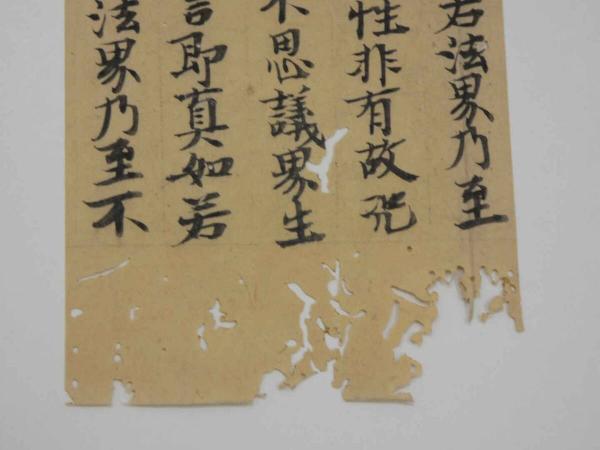 若法界乃至
性非有故况
不思議界生
言即真如若
法界乃至不